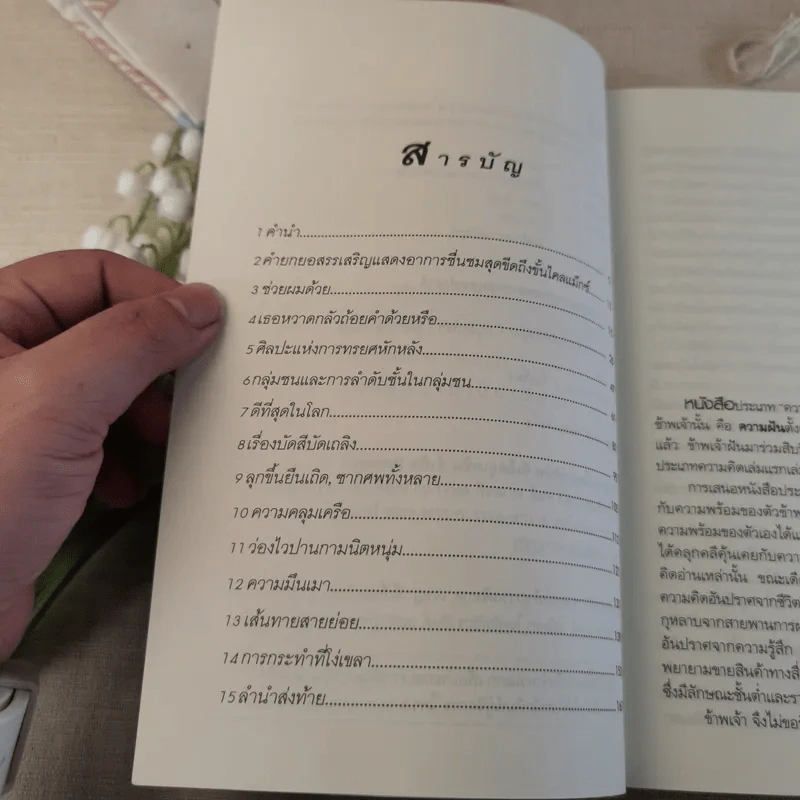 สารบัญ
1 คำนำ
2 คำยกยอสรรเสริญแสดงอาการชื่นชมสุดขีดถึงขั้นไคลแม็กซ์
3 ช่วยผมด้วย
4 เธอหวาดกลัวถ้อยคำด้วยหรือ
5 ศิลปะแห่งการทรยศหักหลัง
6 กลุ่มชนและการลำดับชั้นในกลุ่มชน
7 ดีที่สุดในโลก
8 เรื่องบัดสีบัดเถลิง
9 ลุกขึ้นยืนเถิด, ซากศพทั้งหลาย
10 ความคลุมเครือ
11 ว่องไวปานกามนิตหนุ่ม
12 ความมึนเมา
13 เส้นทายสายย่อย
14 การกระทำที่โง่เขลา
15 ลำนำส่งท้าย
หนังสือประเภท
ข้าพเจ้านั้น คือ ความฝันตั้ง
แล้ว ข้าพเจ้าฝันมาร่วมสิบ
ประเภทความคิดเล่มแรกเล่ม
การเสนอหนังสือประ
กับความพร้อมของตัวข้าพ
ความพร้อมของตัวเองได้
ได้คลุกคลีคุ้นเคยกับความ
คิดอ่านเหล่านั้น ขณะเดีย
ความคิดอันปราศจากชีวิต
กุหลาบจากสายพานการผ
อันปราศจากความรู้สึก
พยายามขายสินค้าทางสื่
ซึ่งมีลักษณะชั้นต่ำและรา
ข้าพเจ้า จึงไม่ขอ